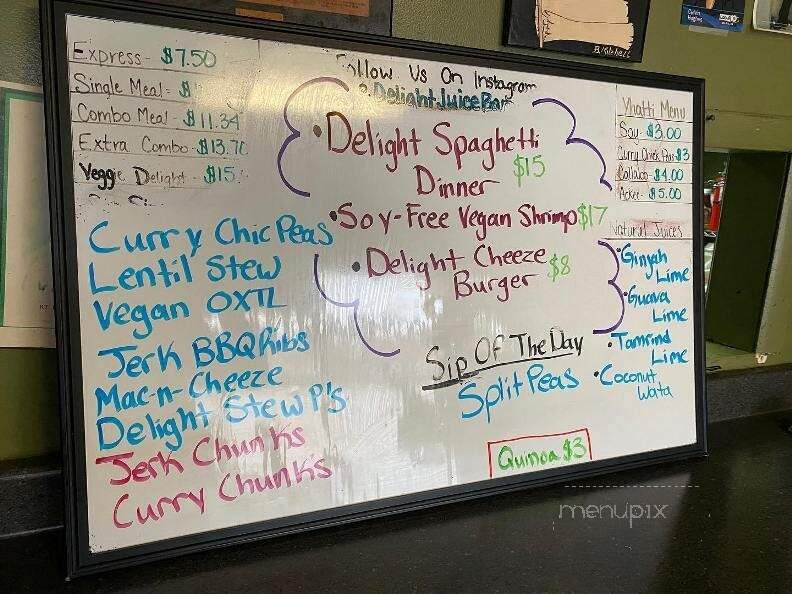 Express - $7.50
Single Meal - $
Combo Meal - $11.34
Extra Combo - $13.70
Veggie Delight - $15.
Curry Chic Peas
Lentil Stew
Vegan OXTL
Jerk BBQ Ribs
Mac-n-Cheeze
Delight Stew P's
Jerk Chunks
Curry Chunk's
Follow Us On Instagram
@DelightJuiceBar
• Delight Spaghetti
Dinner $15
• Soy-Free Vegan Shrimp $17
• Delight Cheeze $8
Burger
Sip Of The Day
Split Peas
Quinoa $3
Yhatti Menu
Soy - $3.00
Curry Chick Peas $3
Callaloo - $4.00
Ackee - $5.00
Natural Juices
• Ginyah
Lime
• Guava
Lime
• Tamrind
Lime
• Coconut
Wata
menupix